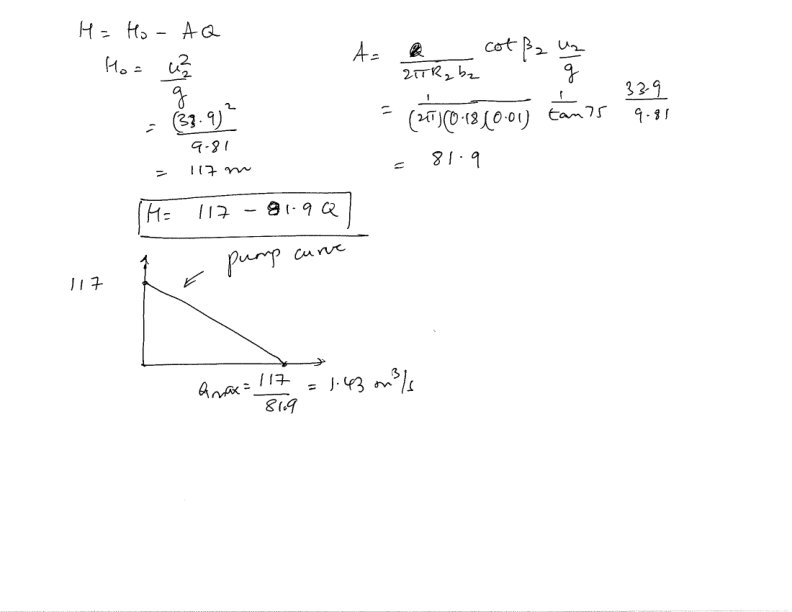 H = H₀ - AQ
H₀ = u₂²/g
= (33.9)²/9.81
= 117 m
A = 1/(2πR₂b₂) cot β₂ u₂/g
= 1/((2π)(0.18)(0.01)) 1/tan75 33.9/9.81
= 81.9
H = 117 - 81.9 Q
pump curve
117
Qmax = 117/81.9 = 1.43 m³/s